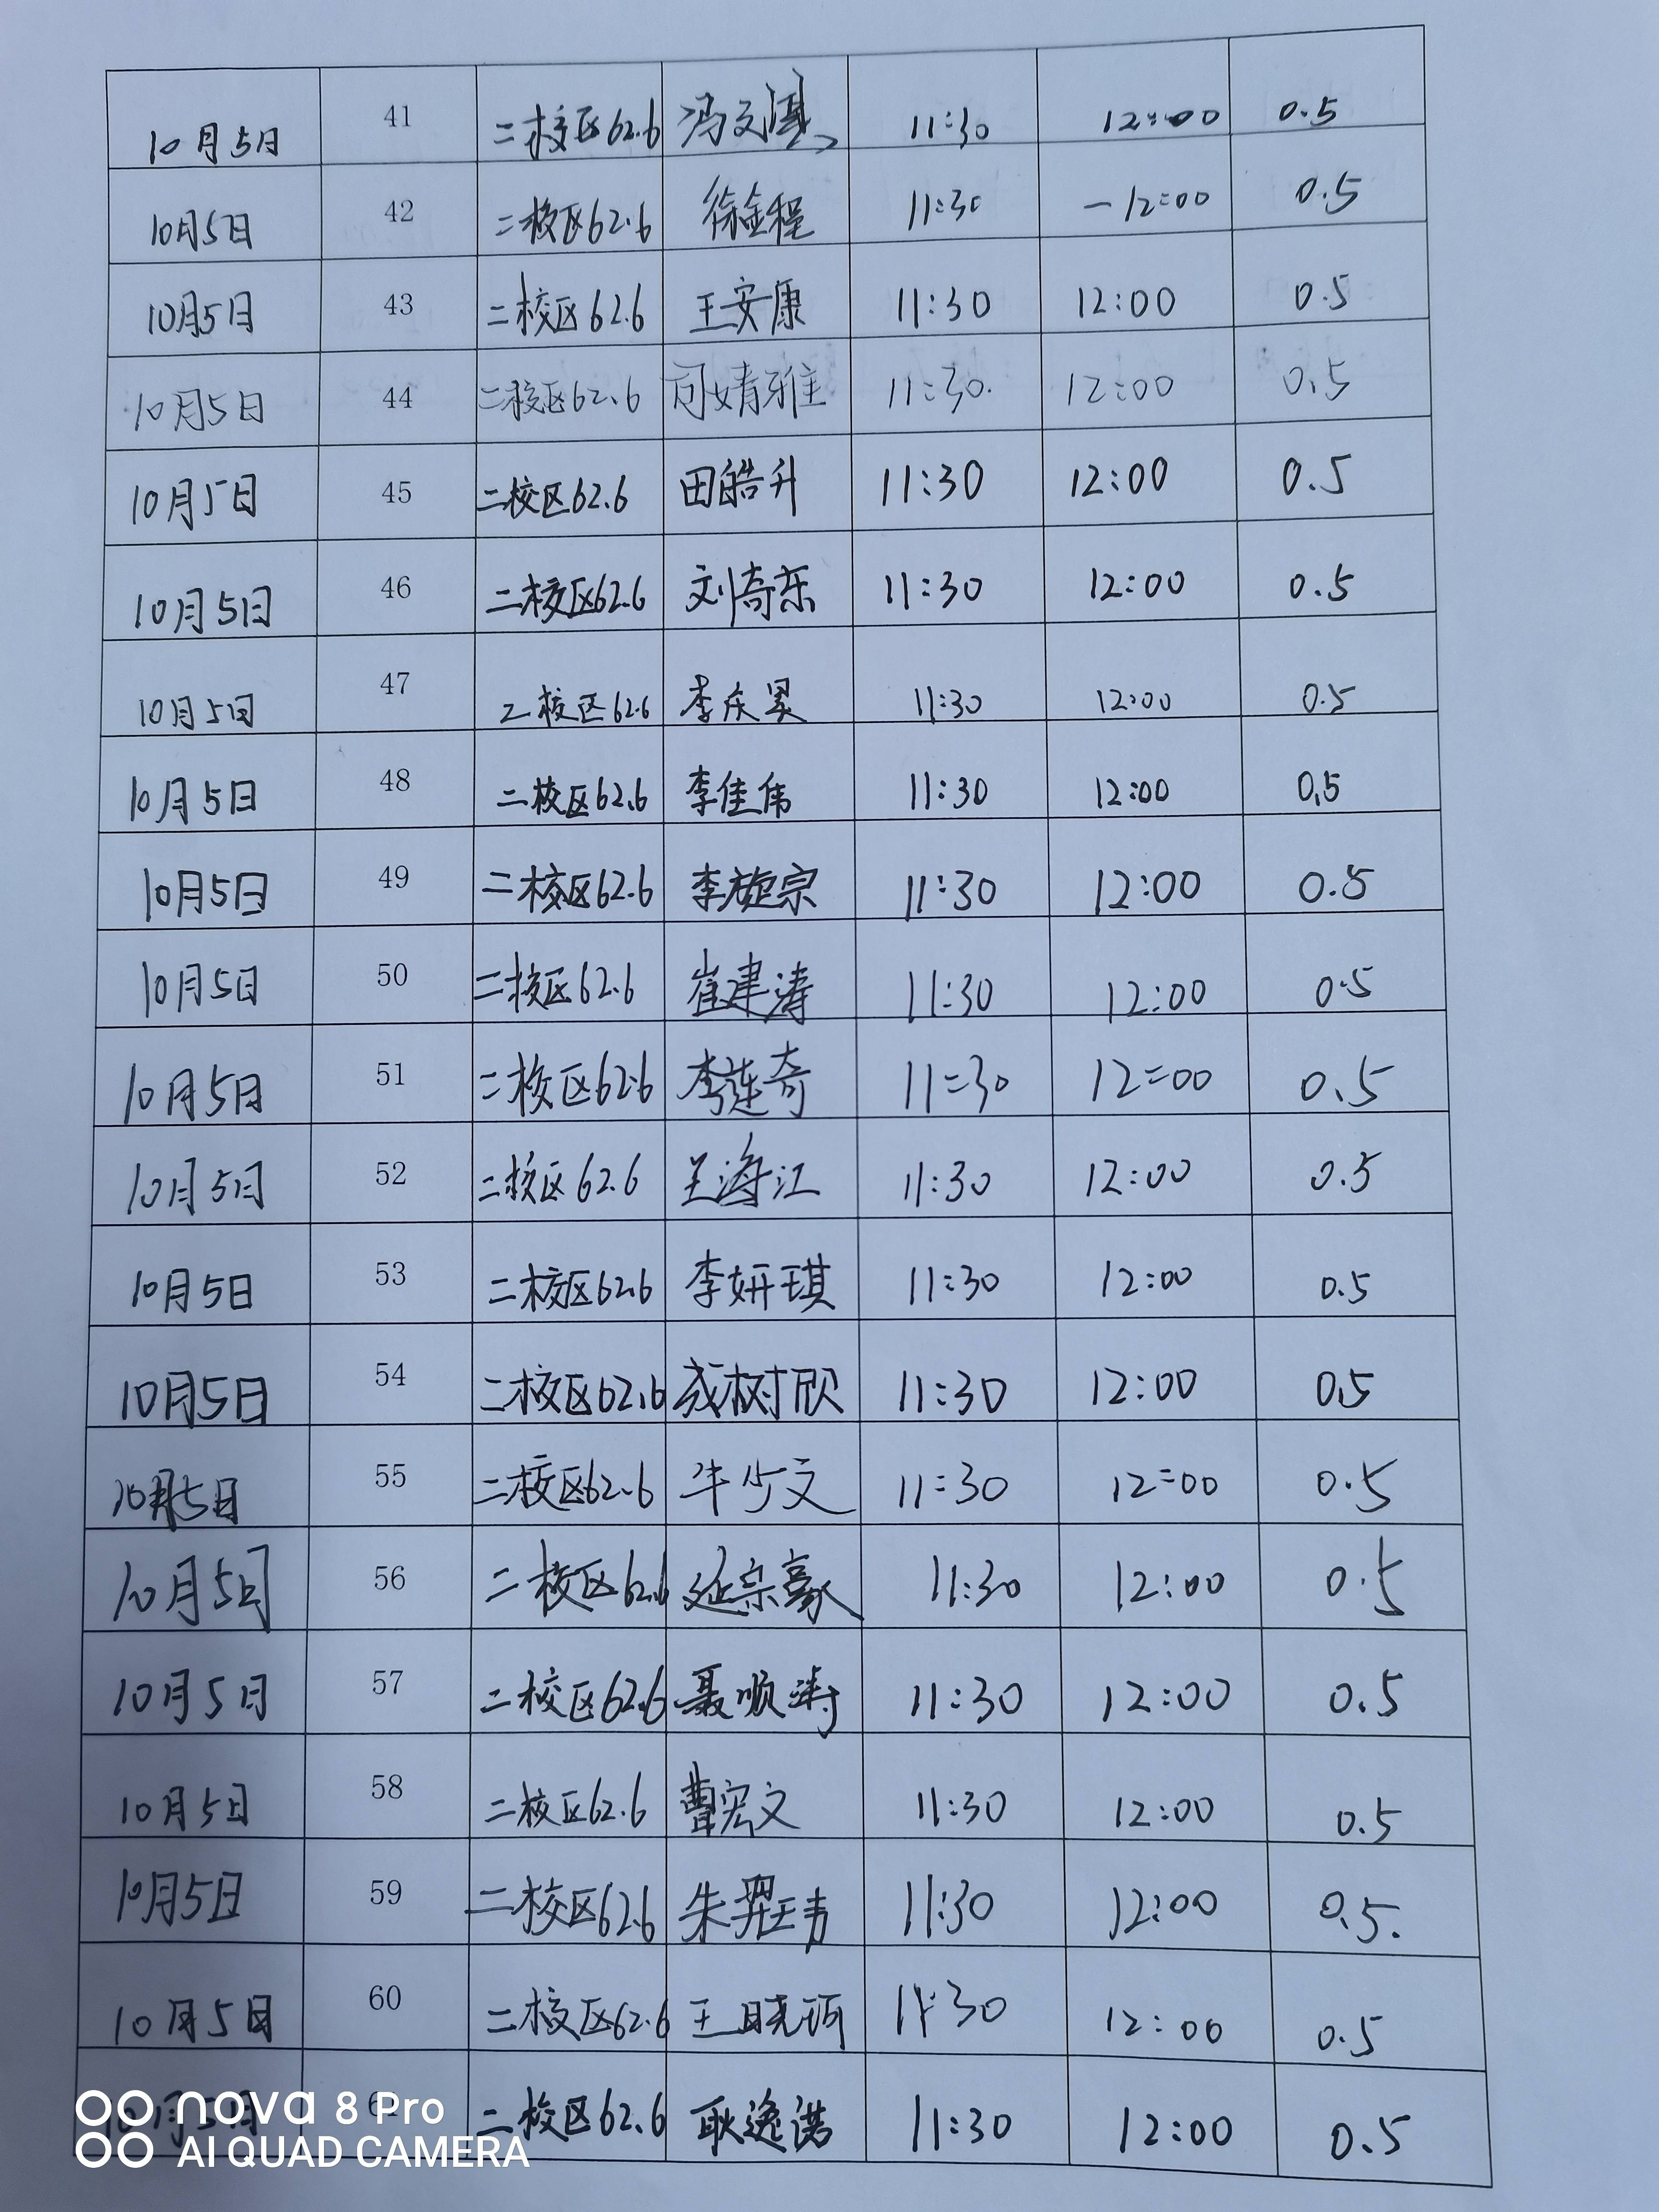 10月5日 41 二校区62.6 冯文淇 11:30 12:00 0.5
10月5日 42 二校区62.6 徐金程 11:30 -12:00 0.5
10月5日 43 二校区62.6 王安康 11:30 12:00 0.5
10月5日 44 二校区62.6 司婧雅 11:30. 12:00 0.5
10月5日 45 二校区62.6 田皓升 11:30 12:00 0.5
10月5日 46 二校区62.6 刘奇东 11:30 12:00 0.5
10月5日 47 二校区62.6 李庆昊 11:30 12:00 0.5
10月5日 48 二校区62.6 李佳伟 11:30 12:00 0.5
10月5日 49 二校区62.6 李旋宗 11:30 12:00 0.5
10月5日 50 二校区62.6 崔建涛 11:30 12:00 0.5
10月5日 51 二校区62.6 李莲奇 11:30 12:00 0.5
10月5日 52 二校区62.6 兰海江 11:30 12:00 0.5
10月5日 53 二校区62.6 李妍琪 11:30 12:00 0.5
10月5日 54 二校区62.6 成树欣 11:30 12:00 0.5
10月5日 55 二校区62.6 牛少文 11:30 12:00 0.5
10月5日 56 二校区62.6 延宗豪 11:30 12:00 0.5
10月5日 57 二校区62.6 聂顺涛 11:30 12:00 0.5
10月5日 58 二校区62.6 曹宏文 11:30 12:00 0.5
10月5日 59 二校区62.6 朱羿玮 11:30 12:00 0.5.
10月5日 60 二校区62.6 王晓珂 11:30 12:00 0.5
10月5日 61 二校区62.6 耿逸诺 11:30 12:00 0.5
nova 8 Pro
AI QUAD CAMERA